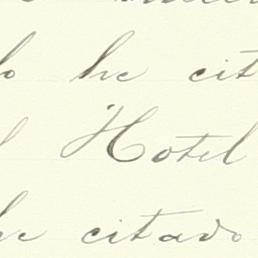 he cit
Hotel
he citado